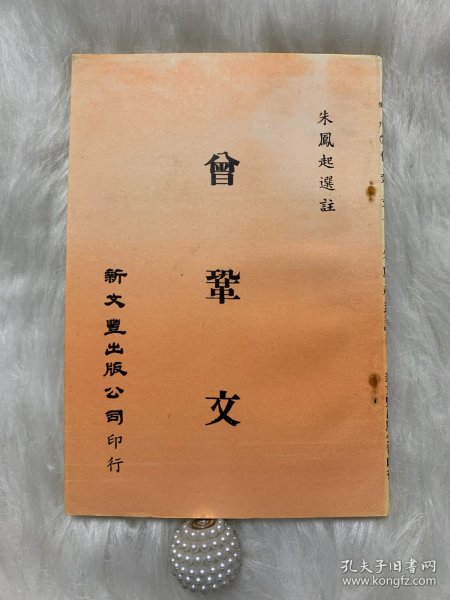 朱鳳起選註
曾鞏文
新文豐出版公司印行
孔夫子旧书网
www.kongfz.com